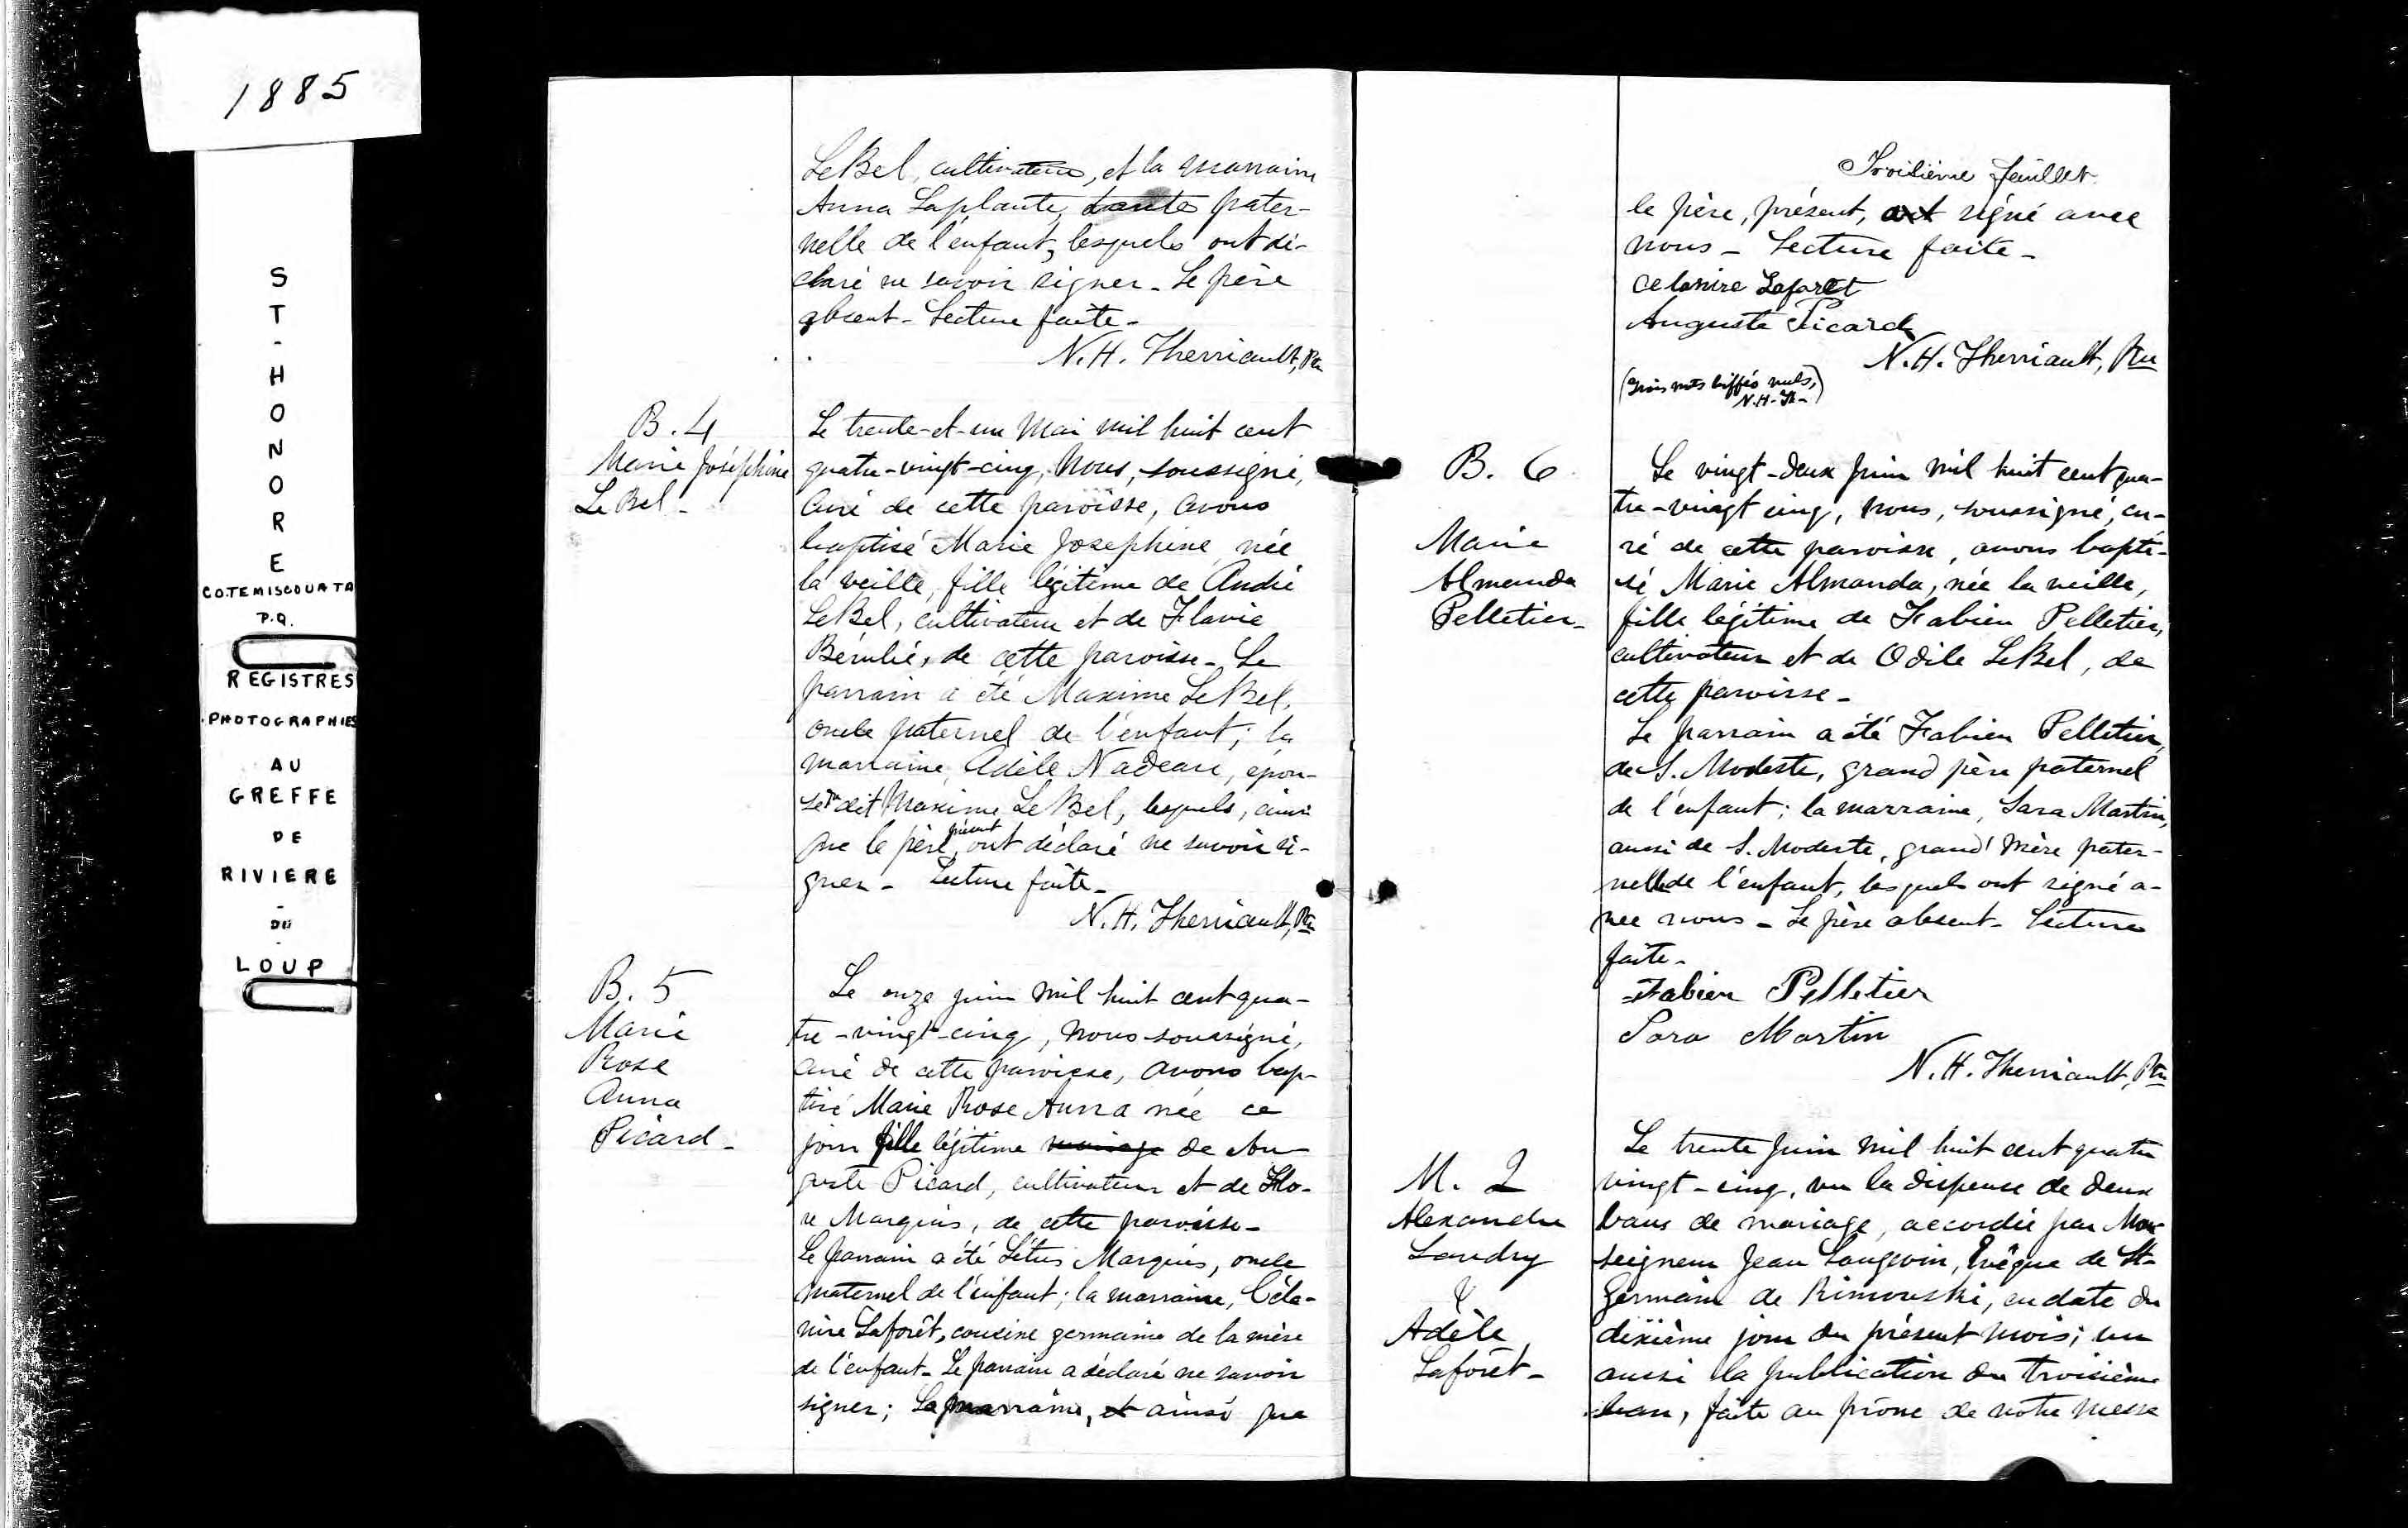 1885
ST-HONORE
CO.TEMISCOUATA
P.Q.
REGISTRES
PHOTOGRAPHIES
AU
GREFFE
DE
RIVIERE
-
DU
-
LOUP
LeBel, cultivateur, et la marraine
Anna Laplante, tante pater-
nelle de l'enfant, lesquels ont dé-
claré ne savoir signer - Le père
absent - Lecture faite -
N. H. Therriault, Ptre
B. 4
Marie Joséphine
LeBel -
Le trente-et-un Mai mil huit cent
quatre-vingt-cinq, Nous, soussigné,
Curé de cette paroisse, avons
baptisé Marie Josephine, née
la veille, fille légitime de André
LeBel, cultivateur et de Flavie
Bérubé, de cette paroisse - Le
parrain a été Maxime LeBel,
oncle paternel de l'enfant; la
marraine, Adèle Nadeau, épou-
se du dit Maxime LeBel, lesquels, ainsi
que le père présent, ont déclaré ne savoir si-
gner - Lecture faite -
N. H. Therriault, Ptre
B. 5
Marie
Rose
Anna
Picard -
Le onze juin mil huit cent qua-
tre-vingt-cinq, nous soussigné,
curé de cette paroisse, avons bap-
tisé Marie Rose Anna née ce
jour fille légitime mariage de Au-
guste Picard, cultivateur et de Flo-
re Marquis, de cette paroisse -
Le parrain a été Létus Marquis, oncle
maternel de l'enfant; la marraine, Céla-
nire Laforêt, cousine germaine de la mère
de l'enfant - Le parrain a déclaré ne savoir
signer; La marraine, et ainsi que
Troisième feuillet
le père, présent, ont signé avec
nous - Lecture faite -
Celanire Laforet
Auguste Picard
N. H. Therriault, Ptre
(Trois mots biffés nuls,
N.H.Th-)
B. 6
Marie
Almanda
Pelletier -
Le vingt-deux Juin mil huit cent qua-
tre-vingt cinq, nous, soussigné, cu-
ré de cette paroisse, avons bapti-
sé Marie Almanda, née la veille,
fille légitime de Fabien Pelletier,
cultivateur et de Odile LeBel, de
cette paroisse -
Le parrain a été Fabien Pelletier,
de S. Modeste, grand père paternel
de l'enfant; la marraine, Sara Martin,
aussi de S. Modeste, grand' mère pater-
nelle de l'enfant, lesquels ont signé a-
vec nous - Le père absent - Lecture
faite -
Fabien Pelletier
Sara Martin
N. H. Therriault, Ptre
M. 2
Alexandre
Landry
&
Adèle
Laforêt -
Le trente Juin mil huit cent quatre
vingt-cinq, vu la dispense de deux
bans de mariage, accordée par Mon
seigneur Jean Langevin, Evêque de St-
Germain de Rimouski, en date du
dixième jour du présent mois; vu
aussi la publication du troisième
ban, faite au prône de notre messe